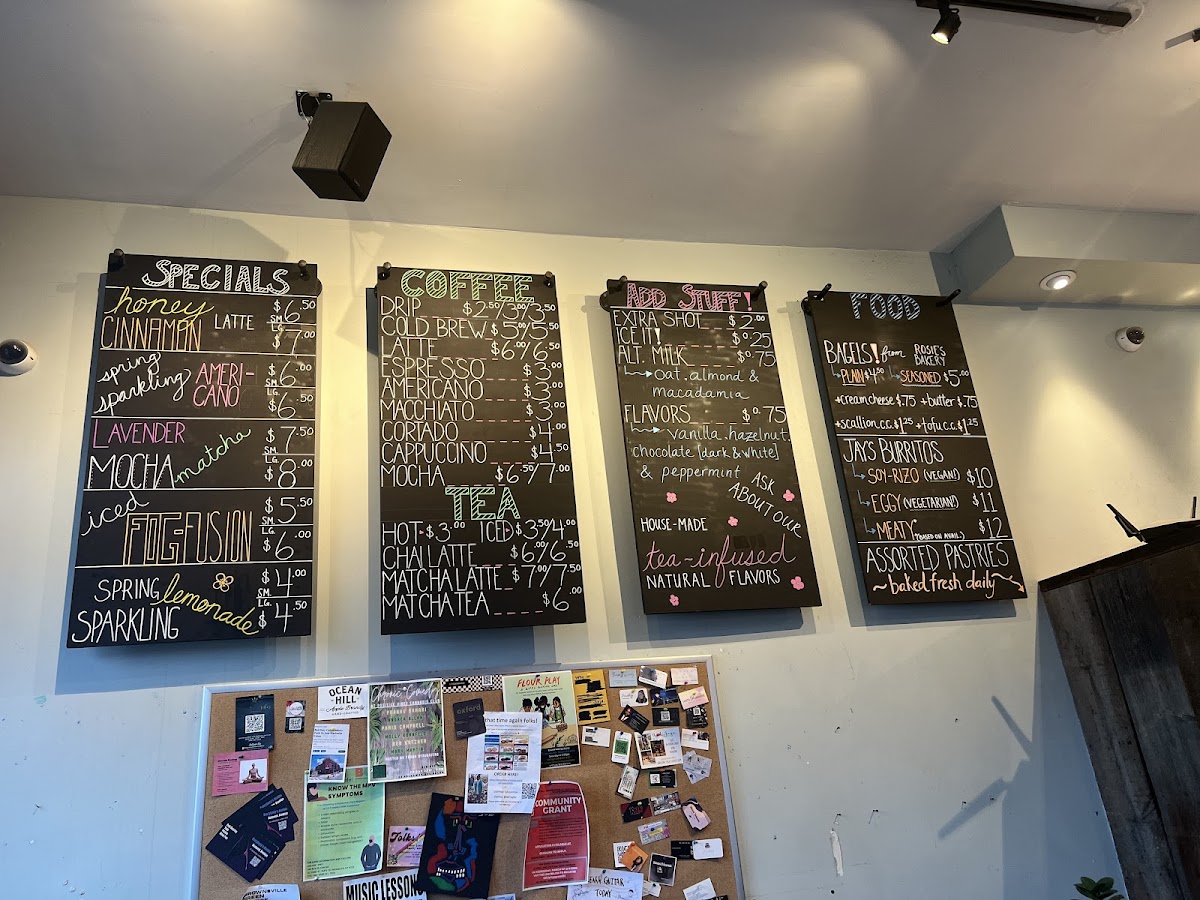 SPECIALS
honey $6.50
SM.
LG.
CINNAMAN LATTE $7.00
spring $6.00
sparkling AMERI-
CANO
SM.
LG.
$6.50
LAVENDER $7.50
SM.
LG.
MOCHA matcha $8.00
iced $5.50
SM.
LG.
FOG-FUSION $6.00
SPRING lemonade $4.00
SM.
LG.
SPARKLING $4.50
COFFEE
DRIP $2.50/3.00/3.50
COLD BREW $5.00/5.50
LATTE $6.00/6.50
ESPRESSO $3.00
AMERICANO $3.00
MACCHIATO $3.00
CORTADO $4.00
CAPPUCCINO $4.50
MOCHA $6.50/7.00
TEA
HOT-$3.00 ICED $3.50/4.00
CHAI LATTE $6.00/6.50
MATCHA LATTE $7.00/7.50
MATCHA TEA $6.00
ADD STUFF!
EXTRA SHOT $2.00
ICE IT! $0.25
ALT. MILK $0.75
oat. almond &
macadamia
FLAVORS $0.75
vanilla. hazelnut.
chocolate [dark & white]
& peppermint
ASK
ABOUT OUR
HOUSE-MADE
tea-infused
NATURAL FLAVORS
FOOD
BAGELS! from ROSIE'S
BAKERY
PLAIN $4.00 SEASONED $5.00
+cream cheese $.75 +butter $.75
+scallion c.c. $1.25 +tofu c.c. $1.25
JAY'S BURRITOS
SOY-RIZO (VEGAN!) $10
EGGY (VEGETARIAN!) $11
MEATY (BASED ON AVAIL.) $12
ASSORTED PASTRIES
~baked fresh daily~
OCEAN
HILL
oxford
FLOUR PLAY
that time again folks!
KNOW THE MPV
SYMPTOMS
COMMUNITY
GRANT
Folks
MUSIC LESSONS